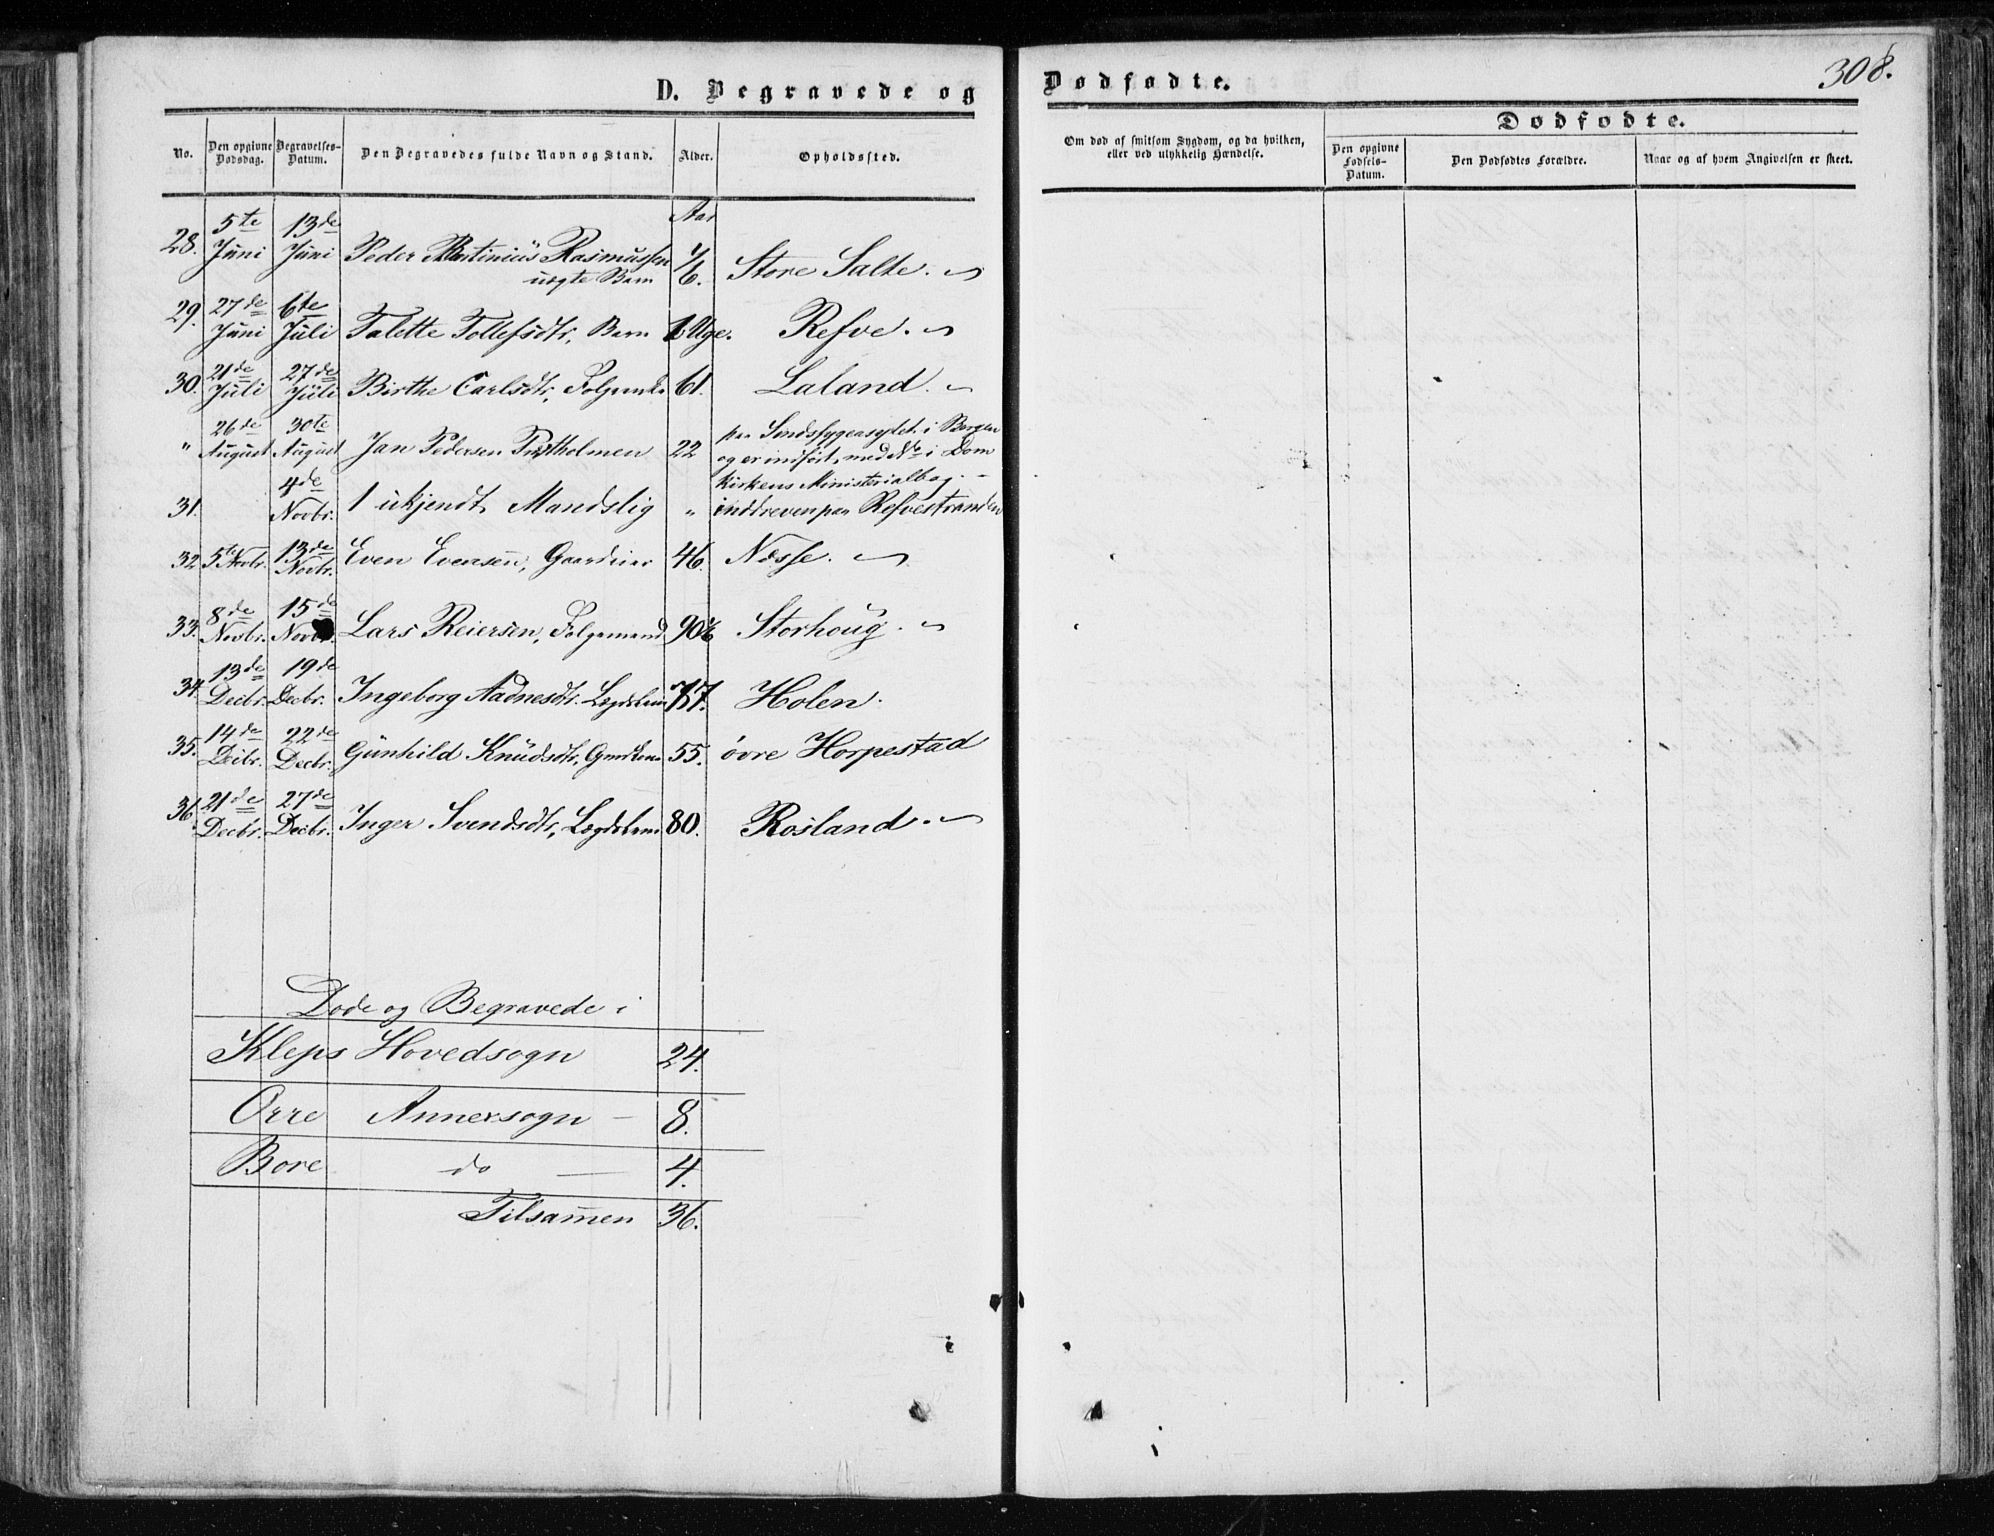 D. Begravede og
Dødfødte.
308.
No.
Den opgivne Dødsdag.
Begravelses-Datum.
Den Begravedes fulde Navn og Stand.
Alder.
Opholdssted.
Om død af smitsom Sygdom, og da hvilken, eller ved ulykkelig Hændelse.
Dødfødte.
Den opgivne Fødsels-Datum.
Den Dødfødtes Forældre.
Naar og af hvem Angivelsen er skeet.
Aar
28. 5te Juni 13de Juni Peder Martinius Rasmussen uægte Barn 1/6. Store Salte.
29. 27de Juni 6te Juli Talette Tollefsdtr, Barn 1 Uge. Refve.
30. 21de Juli 27de Juli Birthe Carlsdtr, 61. Laland.
" 26de August 30te August Jan Pedersen 22 paa Sindssygeasylet i Bergen
og er indført, med No i Dom
kirkens Ministerialbog. -
31. 4de Novbr. 1 ukjendt Mandslig " inddreven paa Refvestranden
32 5te Novbr. 13de Novbr. Even Evensen, Gaardmand 46. Næsse.
33. 8de Novbr. 15de Novbr. Lars Reiersen, Folgemand 90 Storhoug.
34. 13de Decbr. 19de Decbr. Ingeborg Aadnesdtr. Lægdslem 77. Holen.
35. 14de Decbr. 22de Decbr. Gunhild Knudsdtr, 55. øvre Horpestad
36. 21de Decbr. 27de Decbr. Inger Svendsdtr, Lægdslem 80. Rosland.
Døde og Begravede i
Kleps Hovedsogn 24.
Orre Annexsogn - 8.
Bore do — 4.
Tilsammen 36.